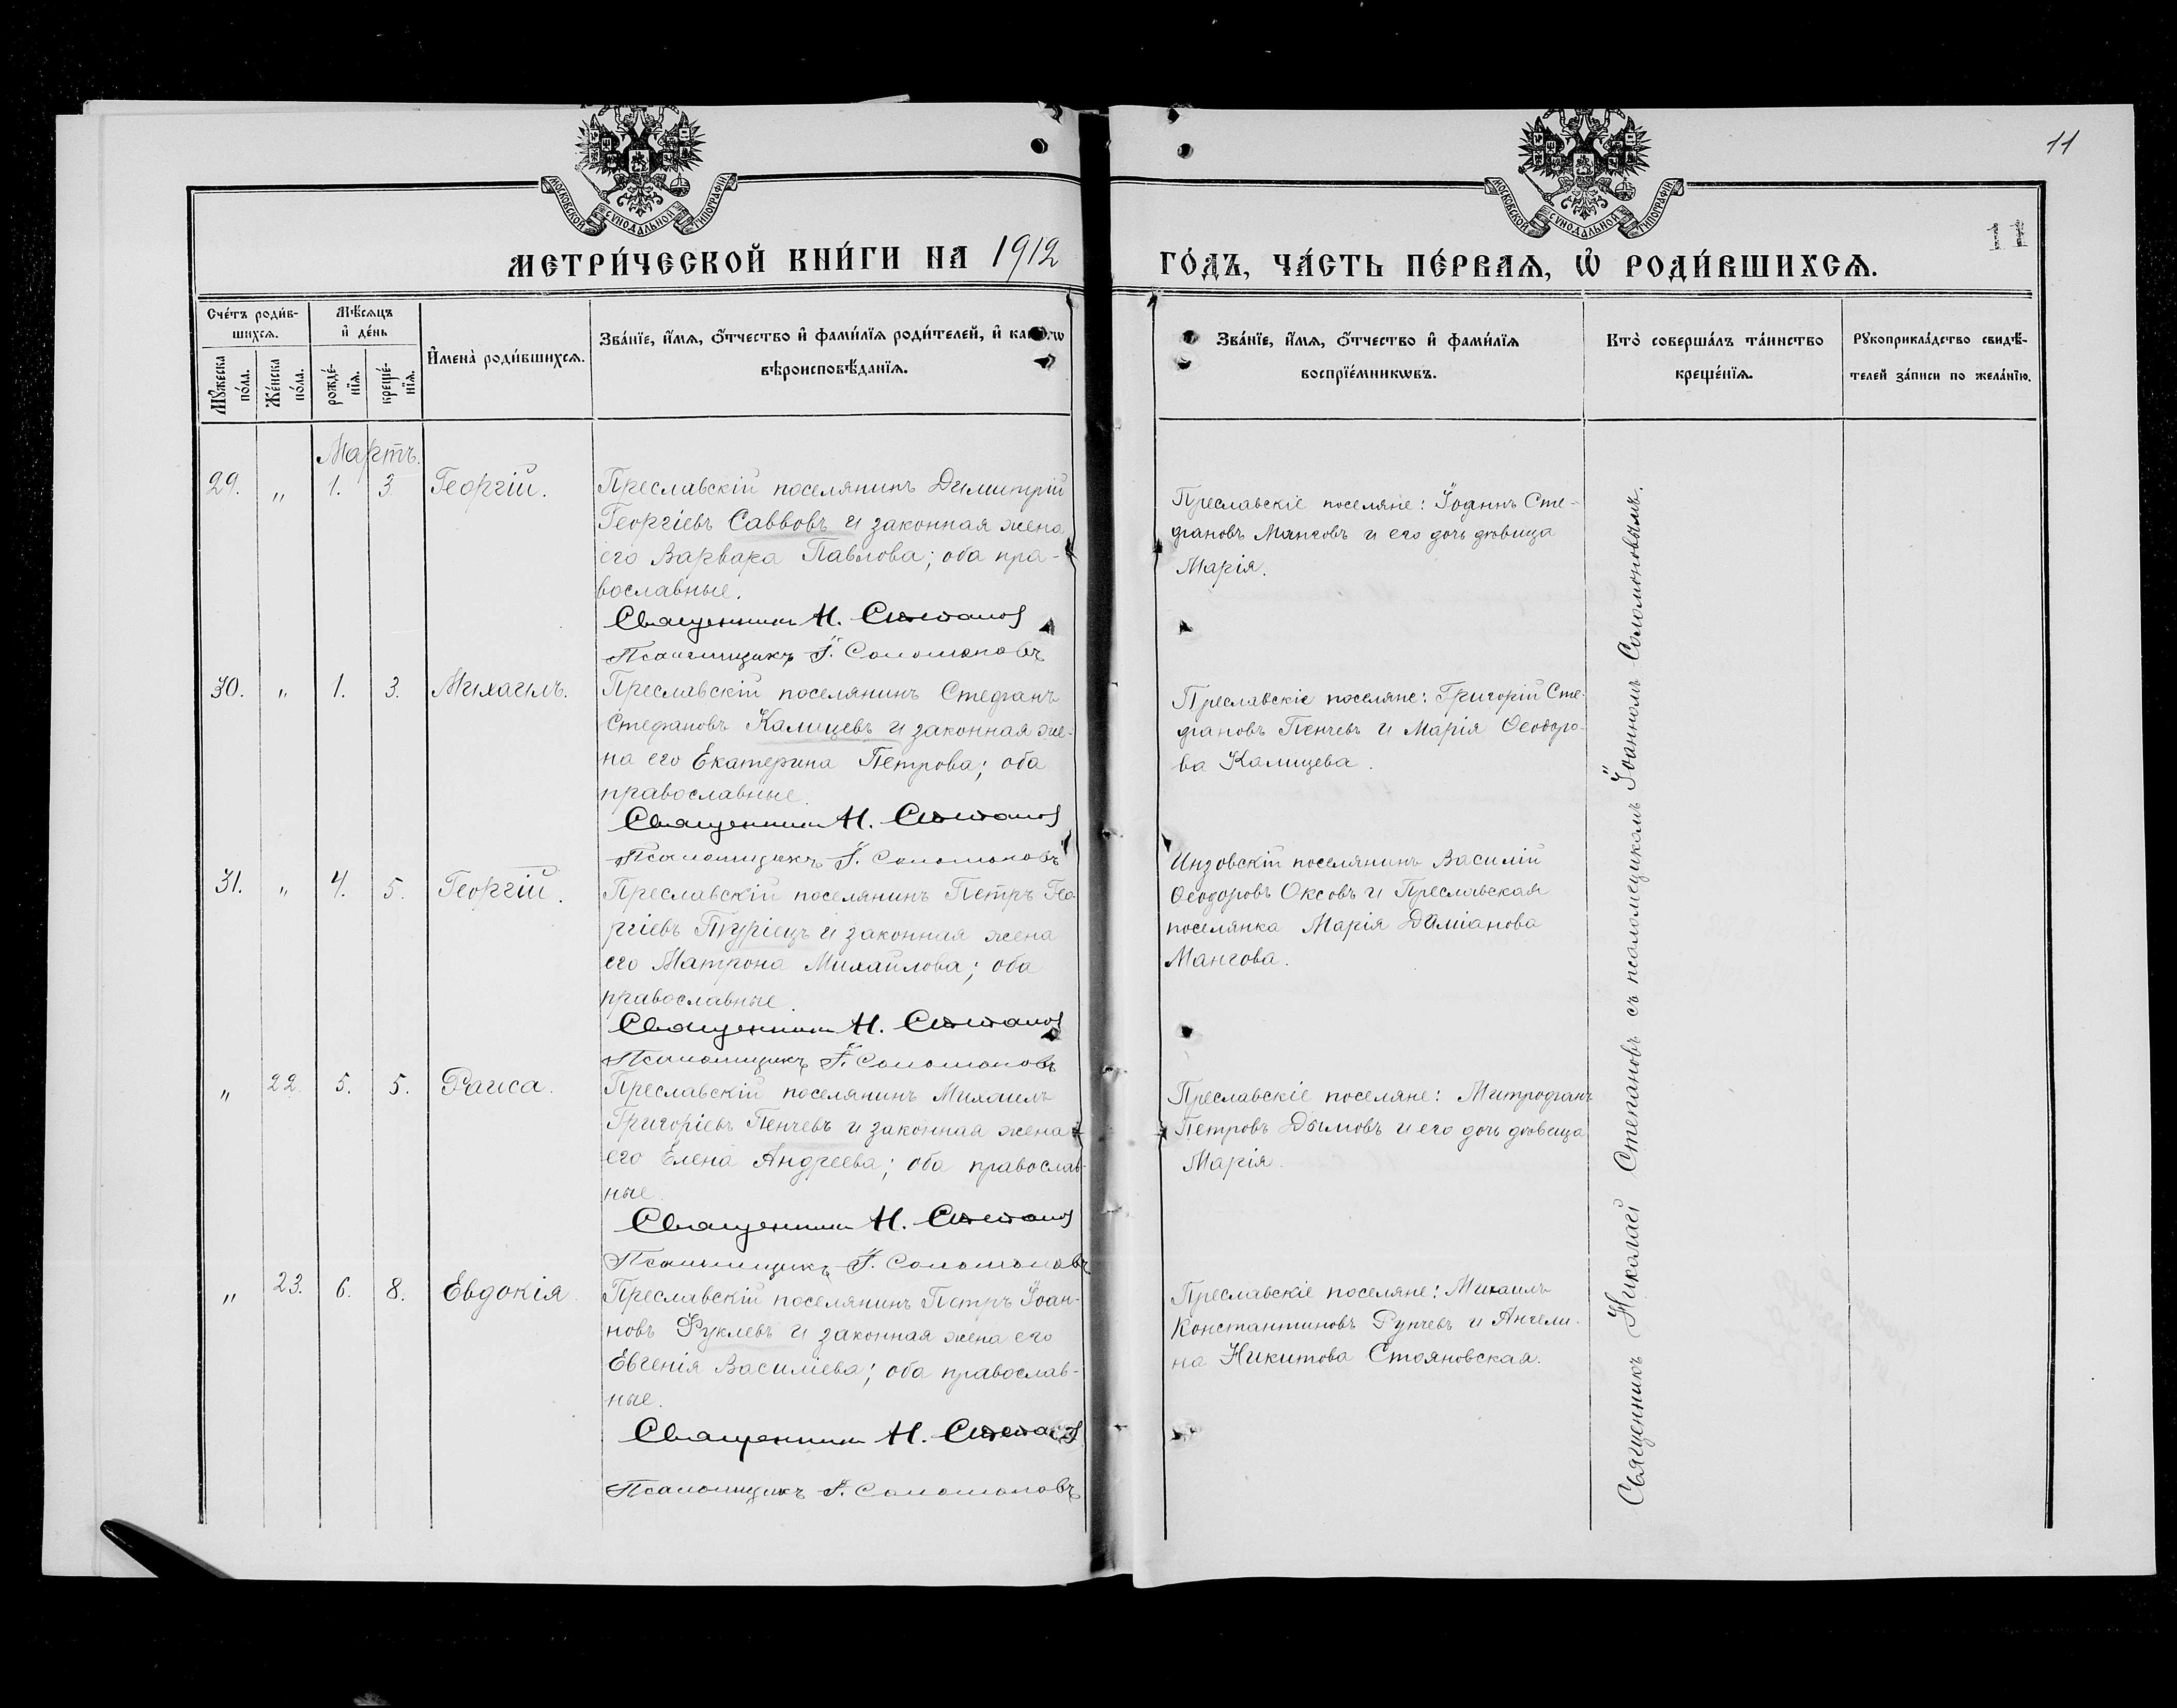 11
МОСКОВСКОЙ СѴНОДАЛЬНОЙ ТИПОГРАФІИ
МОСКОВСКОЙ СѴНОДАЛЬНОЙ ТИПОГРАФІИ
11
МЕТРИ́ЧЕСКОЙ КНИ́ГИ НА 1912
ГО́ДЪ, ЧА́СТЬ ПЕ́РВАѦ, Ѡ҆ РОДИ́ВШИХСѦ.
Сче́тъ роди́в-
шихсѧ.
Мѣ́сѧцъ
и҆ де́нь
Мꙋ́жеска
по́ла.
Же́нска
по́ла.
рожде́-
нїѧ.
креще́-
нїѧ.
И҆мена̀ роди́вшихсѧ.
Зва́нїе, и҆́мѧ, ѻ҆́тчество и҆ фами́лїѧ роди́телей, и҆
вѣроисповѣ́данїѧ.
Зва́нїе, и҆́мѧ, ѻ҆́тчество и҆ фами́лїѧ
воспрїе́мникѡвъ.
Кто̀ соверша́лъ та́инство
креще́нїѧ.
Рꙋкоприкла́дство свидѣ́-
телей за́писи по жела́нїю.
Мартъ.
29. „ 1. 3. Георгій.
Преславскій поселянинъ Димитрій
Георгіевъ Саввовъ и законная жена
его Варвара Павлова; оба пра-
вославные.
Священникъ Н. Степановъ
Псаломщикъ І. Соломоновъ
Преславскіе поселяне: Іоаннъ Сте-
фановъ Мангов и его дочь дѣвица
Марія.
30. „ 1. 3. Михаилъ.
Преславскій поселянинъ Стефанъ
Стефановъ Калицевъ и законная же-
на его Екатерина Петрова; оба
православные.
Священникъ Н. Степановъ
Псаломщикъ І. Соломоновъ
Преславскіе поселяне: Григорій Сте-
фановъ Пенчевъ и Марія Ѳеодоро-
ва Калицева.
31. „ 4. 5. Георгій.
Преславскій поселянинъ Петръ Гео-
ргіевъ Туріецъ и законная жена
его Матрона Михайлова; оба
православные.
Священникъ Н. Степановъ
Псаломщикъ І. Соломоновъ
Инзовскій поселянинъ Василій
Ѳеодоровъ Оксовъ и Преславская
поселянка Марія Даміанова
Мангова.
„ 22. 5. 5. Раиса.
Преславскій поселянинъ Михаилъ
Григоріевъ Пенчевъ и законная жена
его Елена Андреева; оба православ-
ные.
Священникъ Н. Степановъ
Псаломщикъ І. Соломоновъ
Преславскіе поселяне: Митрофанъ
Петровъ Дымовъ и его дочь дѣвица
Марія.
„ 23. 6. 8. Евдокія.
Преславскій поселянинъ Петръ Іоан-
новъ Фуклевъ и законная жена его
Евгенія Василіева; оба православ-
ные.
Священникъ Н. Степановъ
Псаломщикъ І. Соломоновъ
Преславскіе поселяне: Михаилъ
Константиновъ Рупчевъ и Ангели-
на Никитова Стояновская.
Священникъ Николай Степановъ съ псаломщикомъ Іоанномъ Соломоновымъ.